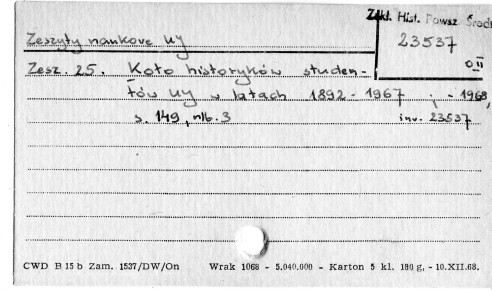 Zakł. Hist. Powsz. Średn
23537
Zeszyty naukowe UJ
0II
Zesz. 25. Koło historyków studen-
tów UJ w latach 1892 - 1967 ; - 1968,
s. 149, nlb. 3 inv. 23537
CWD B 15 b Zam. 1537/DW/On Wrak 1068 - 5.040.000 - Karton 5 kl. 180 g, - 10.XII.68.